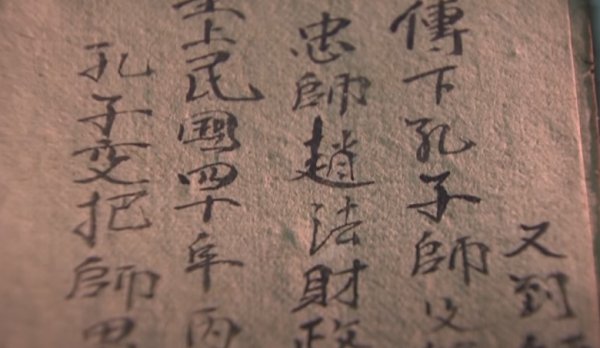 又到
傳下孔子師父
忠師趙法財政
上民國四十年丙
孔子变把師男